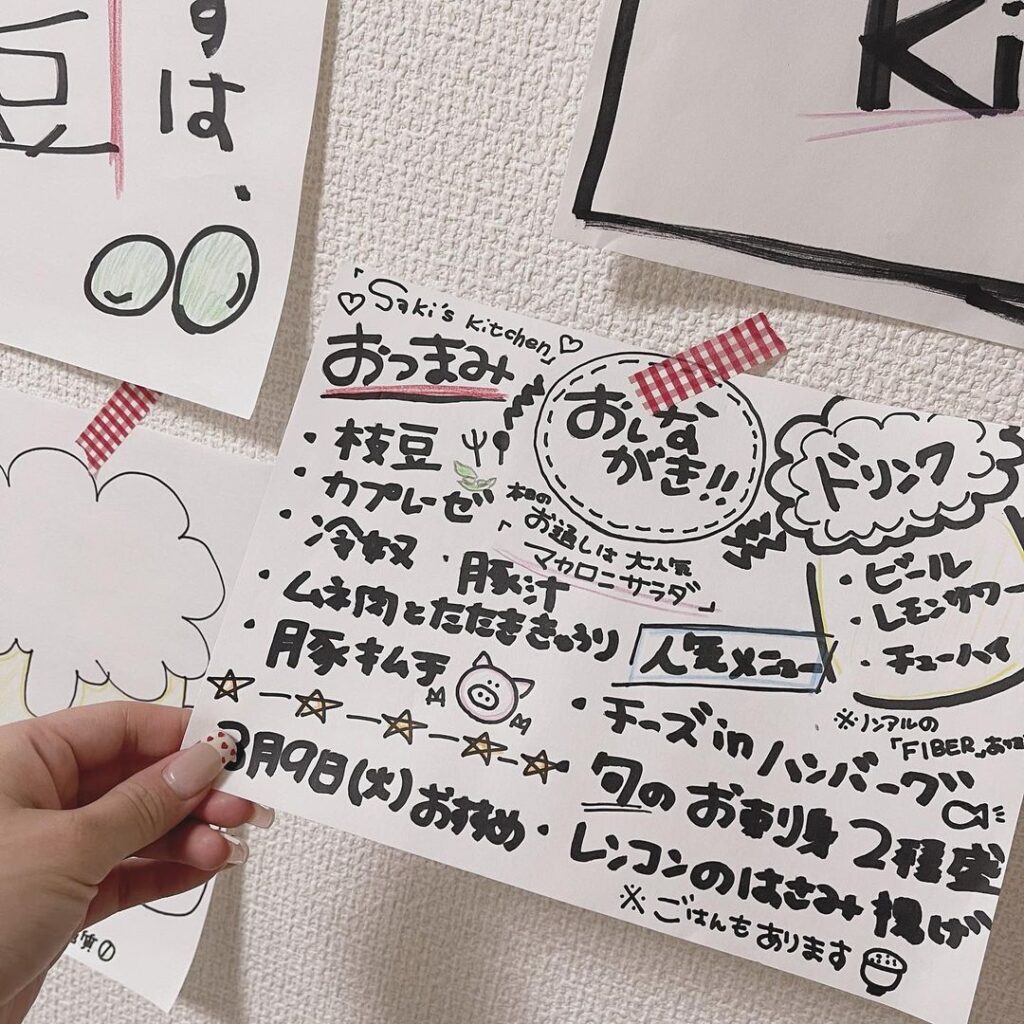 すは、
豆
Ki
「Saki's Kitchen」
おつまみ
・枝豆
・カプレーゼ
・冷奴 ・豚汁
・ムネ肉とたたききゅうり
・豚キムチ
おしな
がき!!
本日の
お通しは 大人気
「マカロニサラダ」
ドリンク
・ビール
・レモンサワー
・チューハイ
※ノンアルの
「FIBER」
人気メニュー
・チーズinハンバーグ
旬のお刺身2種盛
・レンコンのはさみ揚げ
※ごはんもあります
3月9日(火)おすすめ
質①